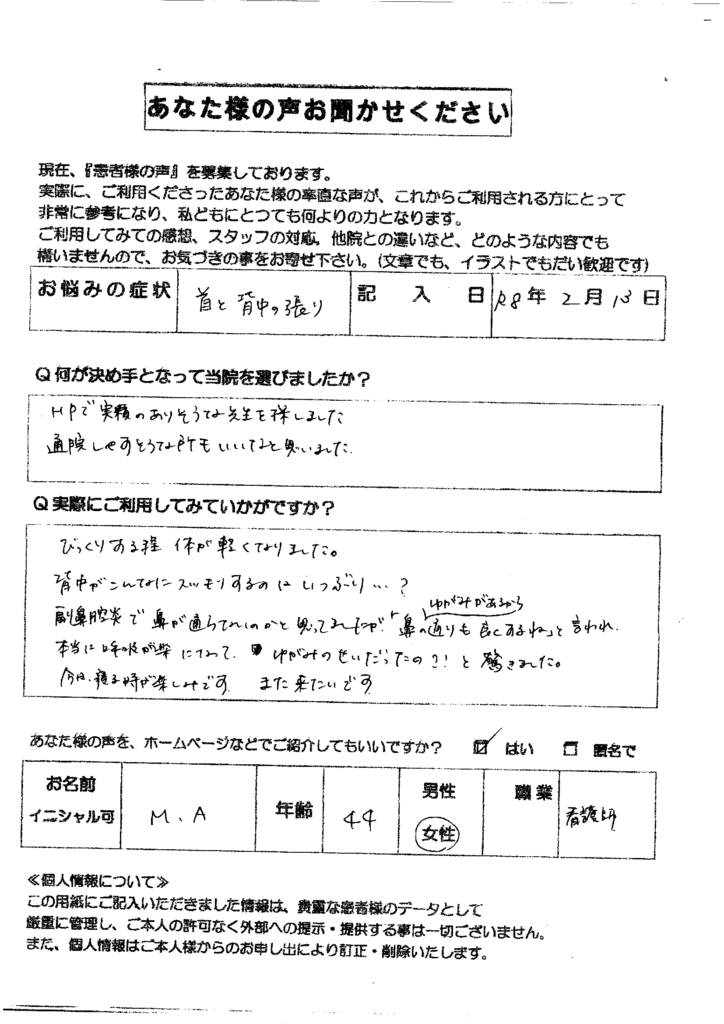 あなた様の声お聞かせください
現在、『患者様の声』を募集しております。
実際に、ご利用くださったあなた様の率直な声が、これからご利用される方にとって
非常に参考になり、私どもにとつても何よりの力となります。
ご利用してみての感想、スタッフの対応、他院との違いなど、どのような内容でも
構いませんので、お気づきの事をお寄せ下さい。(文章でも、イラストでもだい歓迎です)
お悩みの症状 首と背中の張り 記入日 R8年 2月 13日
Q 何が決め手となって当院を選びましたか？
HPで実績のありそうな先生を探しました
通院しやすそうな所もいいなと思いました.
Q 実際にご利用してみていかがですか？
びっくりする程 体が軽くなりました。
背中がこんなにスッキリするのはいつぶり…？
ゆがみがあるから
副鼻腔炎で鼻が通らないのかと思ってましたが「鼻の通りも良くなるね」と言われ.
本当に呼吸が楽になって、ゆがみのせいだったの？！と驚きました。
今は、寝る時が楽しみです. また来たいです
あなた様の声を、ホームページなどでご紹介してもいいですか？ ☑ はい □ 匿名で
お名前 イニシャル可 M.A 年齢 44 男性 女性 職業 看護師
≪個人情報について≫
この用紙にご記入いただきました情報は、貴重な患者様のデータとして
厳重に管理し、ご本人の許可なく外部への提示・提供する事は一切ございません。
また、個人情報はご本人様からのお申し出により訂正・削除いたします。